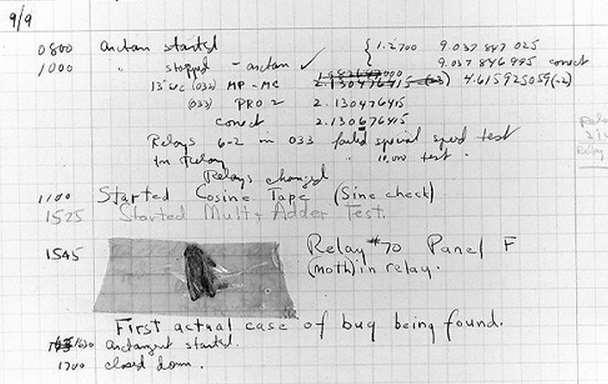 9/9
0800 Antan started
1000 " stopped - antan ✓ { 1.2700 9.037 847 025
9.037 846 995 correct
13"uc (032) MP - MC 2.130476415 (-3) 4.615925059(-2)
(033) PRO 2 2.130476415
correct 2.130676415
Relays 6-2 in 033 failed special speed test
in Relay " 10,000 test.
Relays changed
1100 Started Cosine Tape (Sine check)
1525 Started Mult + Adder Test.
1545 Relay #70 Panel F
(moth) in relay.
First actual case of bug being found.
1630 antangent started.
1700 closed down.